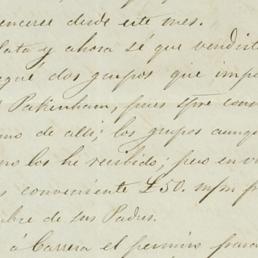 vencerse desde este mes.
lata y ahora sé que vendrá
egué dos grupos que impo
Pakenham, pues spre cons
mo de alli; los grupos aunqu
no los he recibido; pero en vi
s conveniente £50. m/m p
bre de sus Padres.
á Carrera el permiso para